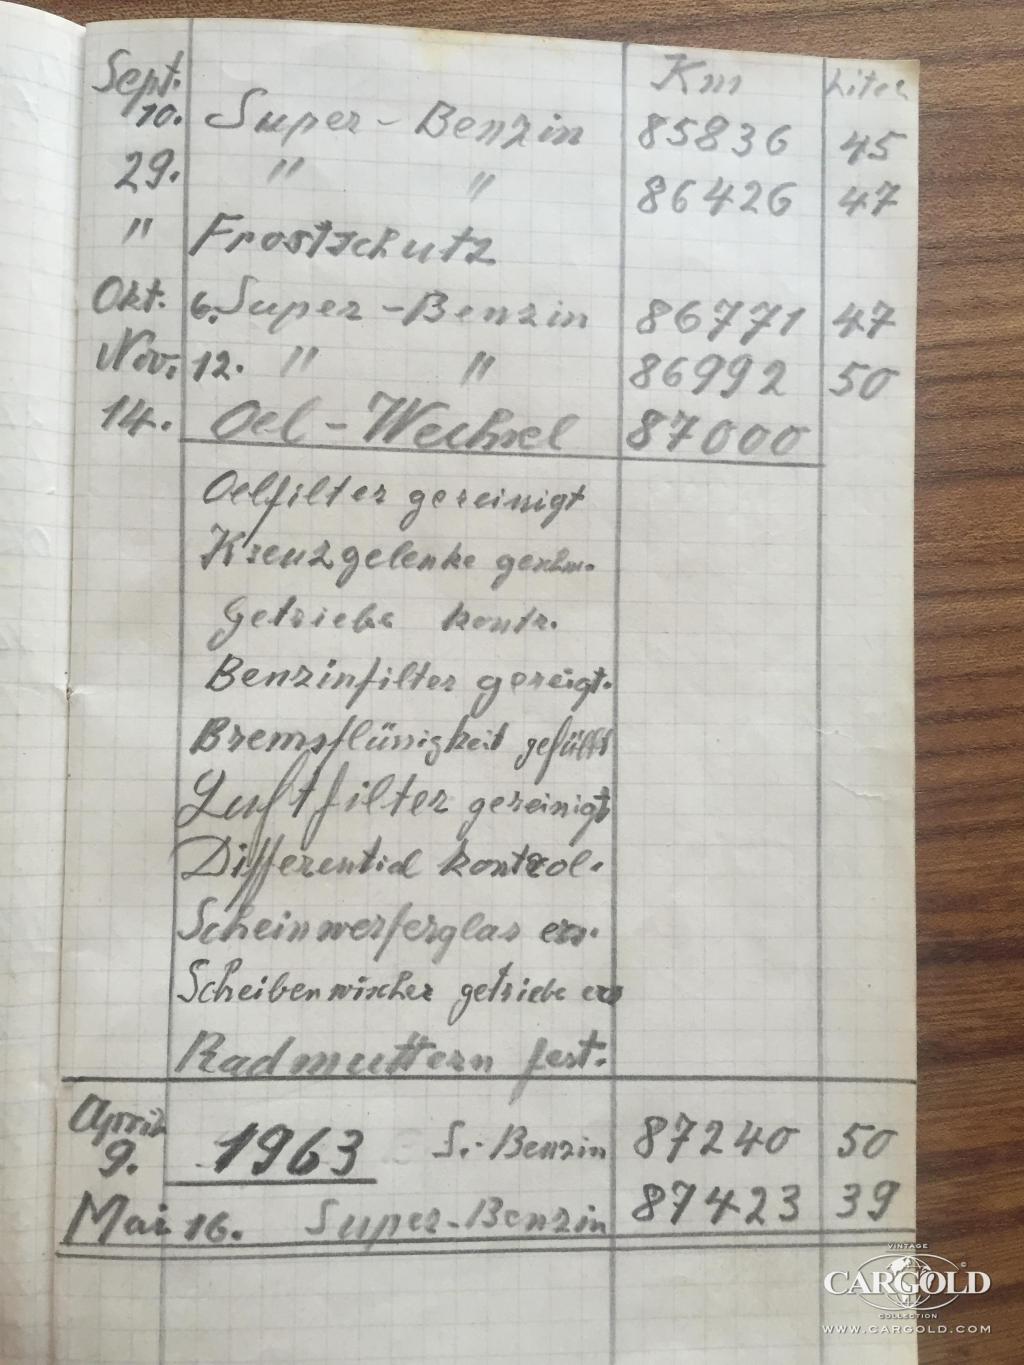 Sept. Km Liter
10. Super-Benzin 85836 45
29. " " 86426 47
" Frostschutz
Okt. 6. Super-Benzin 86771 47
Nov. 12. " " 86992 50
14. Oel-Wechsel 87000
Oelfilter gereinigt
Kreuzgelenke geschm.
Getriebe kontr.
Benzinfilter gereigt.
Bremsflüssigkeit gefüllt
Luftfilter gereinigt
Differential kontrol.
Scheinwerferglas ers.
Scheibenwischer getriebe ers
Radmuttern fest.
April
9. 1963 S.-Benzin 87240 50
Mai 16. Super-Benzin 87423 39
VINTAGE
CARGOLD©
COLLECTION
WWW.CARGOLD.COM